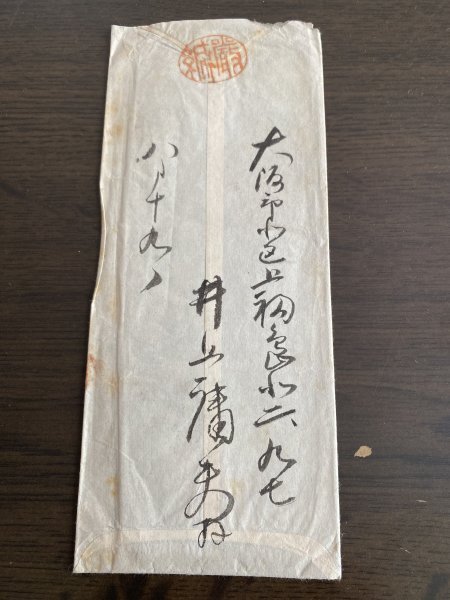 大阪市北区上福島北二、九七
井上
八月十九日